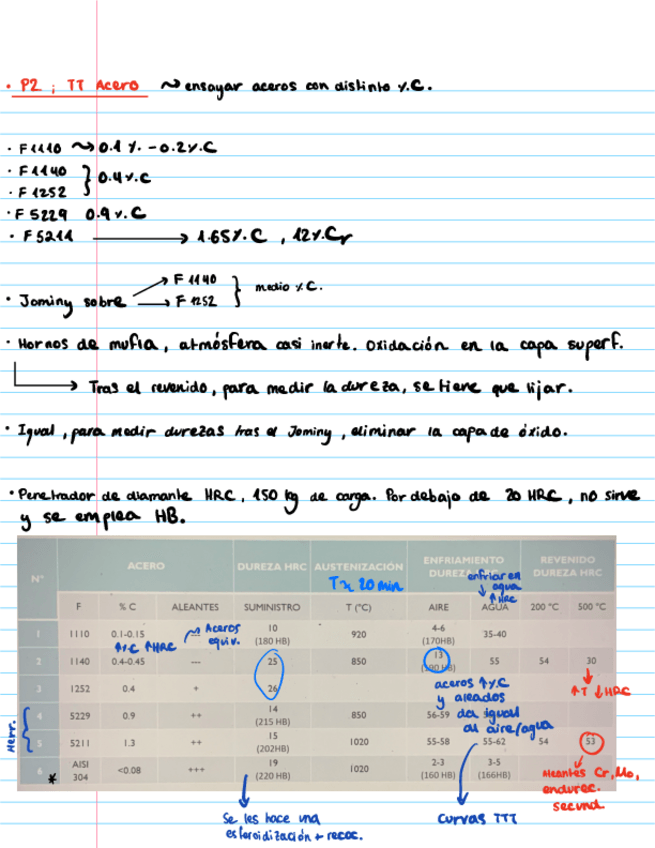 • P2 ; TT Acero ~> ensayar aceros con distinto %C.
• F1110 ~> 0.1% - 0.2%C
• F1140
• F1252 } 0.4%C
• F5229 0.9%C
• F5211 → 1.65%C, 12%Cr
• Jominy sobre → F1140
→ F1252 } medio %C.
• Hornos de mufla, atmósfera casi inerte. Oxidación en la capa superf.
→ Tras el revenido, para medir la dureza, se tiene que lijar.
• Igual, para medir durezas tras el Jominy, eliminar la capa de óxido.
• Penetrador de diamante HRC, 150 kg de carga. Por debajo de 20 HRC, no sirve
y se emplea HB.
Nº ACERO DUREZA HRC AUSTENIZACIÓN ENFRIAMIENTO DUREZA REVENIDO DUREZA HRC
T ~ 20 min
enfriar en agua ↓ ↑HRC
F % C ALEANTES SUMINISTRO T (ºC) AIRE AGUA 200 °C 500 °C
1 1110 0.1-0.15 10 (180 HB) 920 4-6 (170HB) 35-40
↑%C ↑HRC
Aceros equiv.
2 1140 0.4-0.45 --- 25 850 13 (190 HB) 55 54 30
3 1252 0.4 + 26
↑T ↓HRC
aceros ↑%C y aleados da igual al aire/agua
4 5229 0.9 ++ 14 (215 HB) 850 56-59
5 5211 1.3 ++ 15 (202HB) 1020 55-58 55-62 54 53
6 AISI 304 <0.08 +++ 19 (220 HB) 1020 2-3 (160 HB) 3-5 (166HB)
Herr.
*
Aleantes Cr, Mo, endurec. secund.
Se les hace una esferoidización + recoc.
Curvas TTT